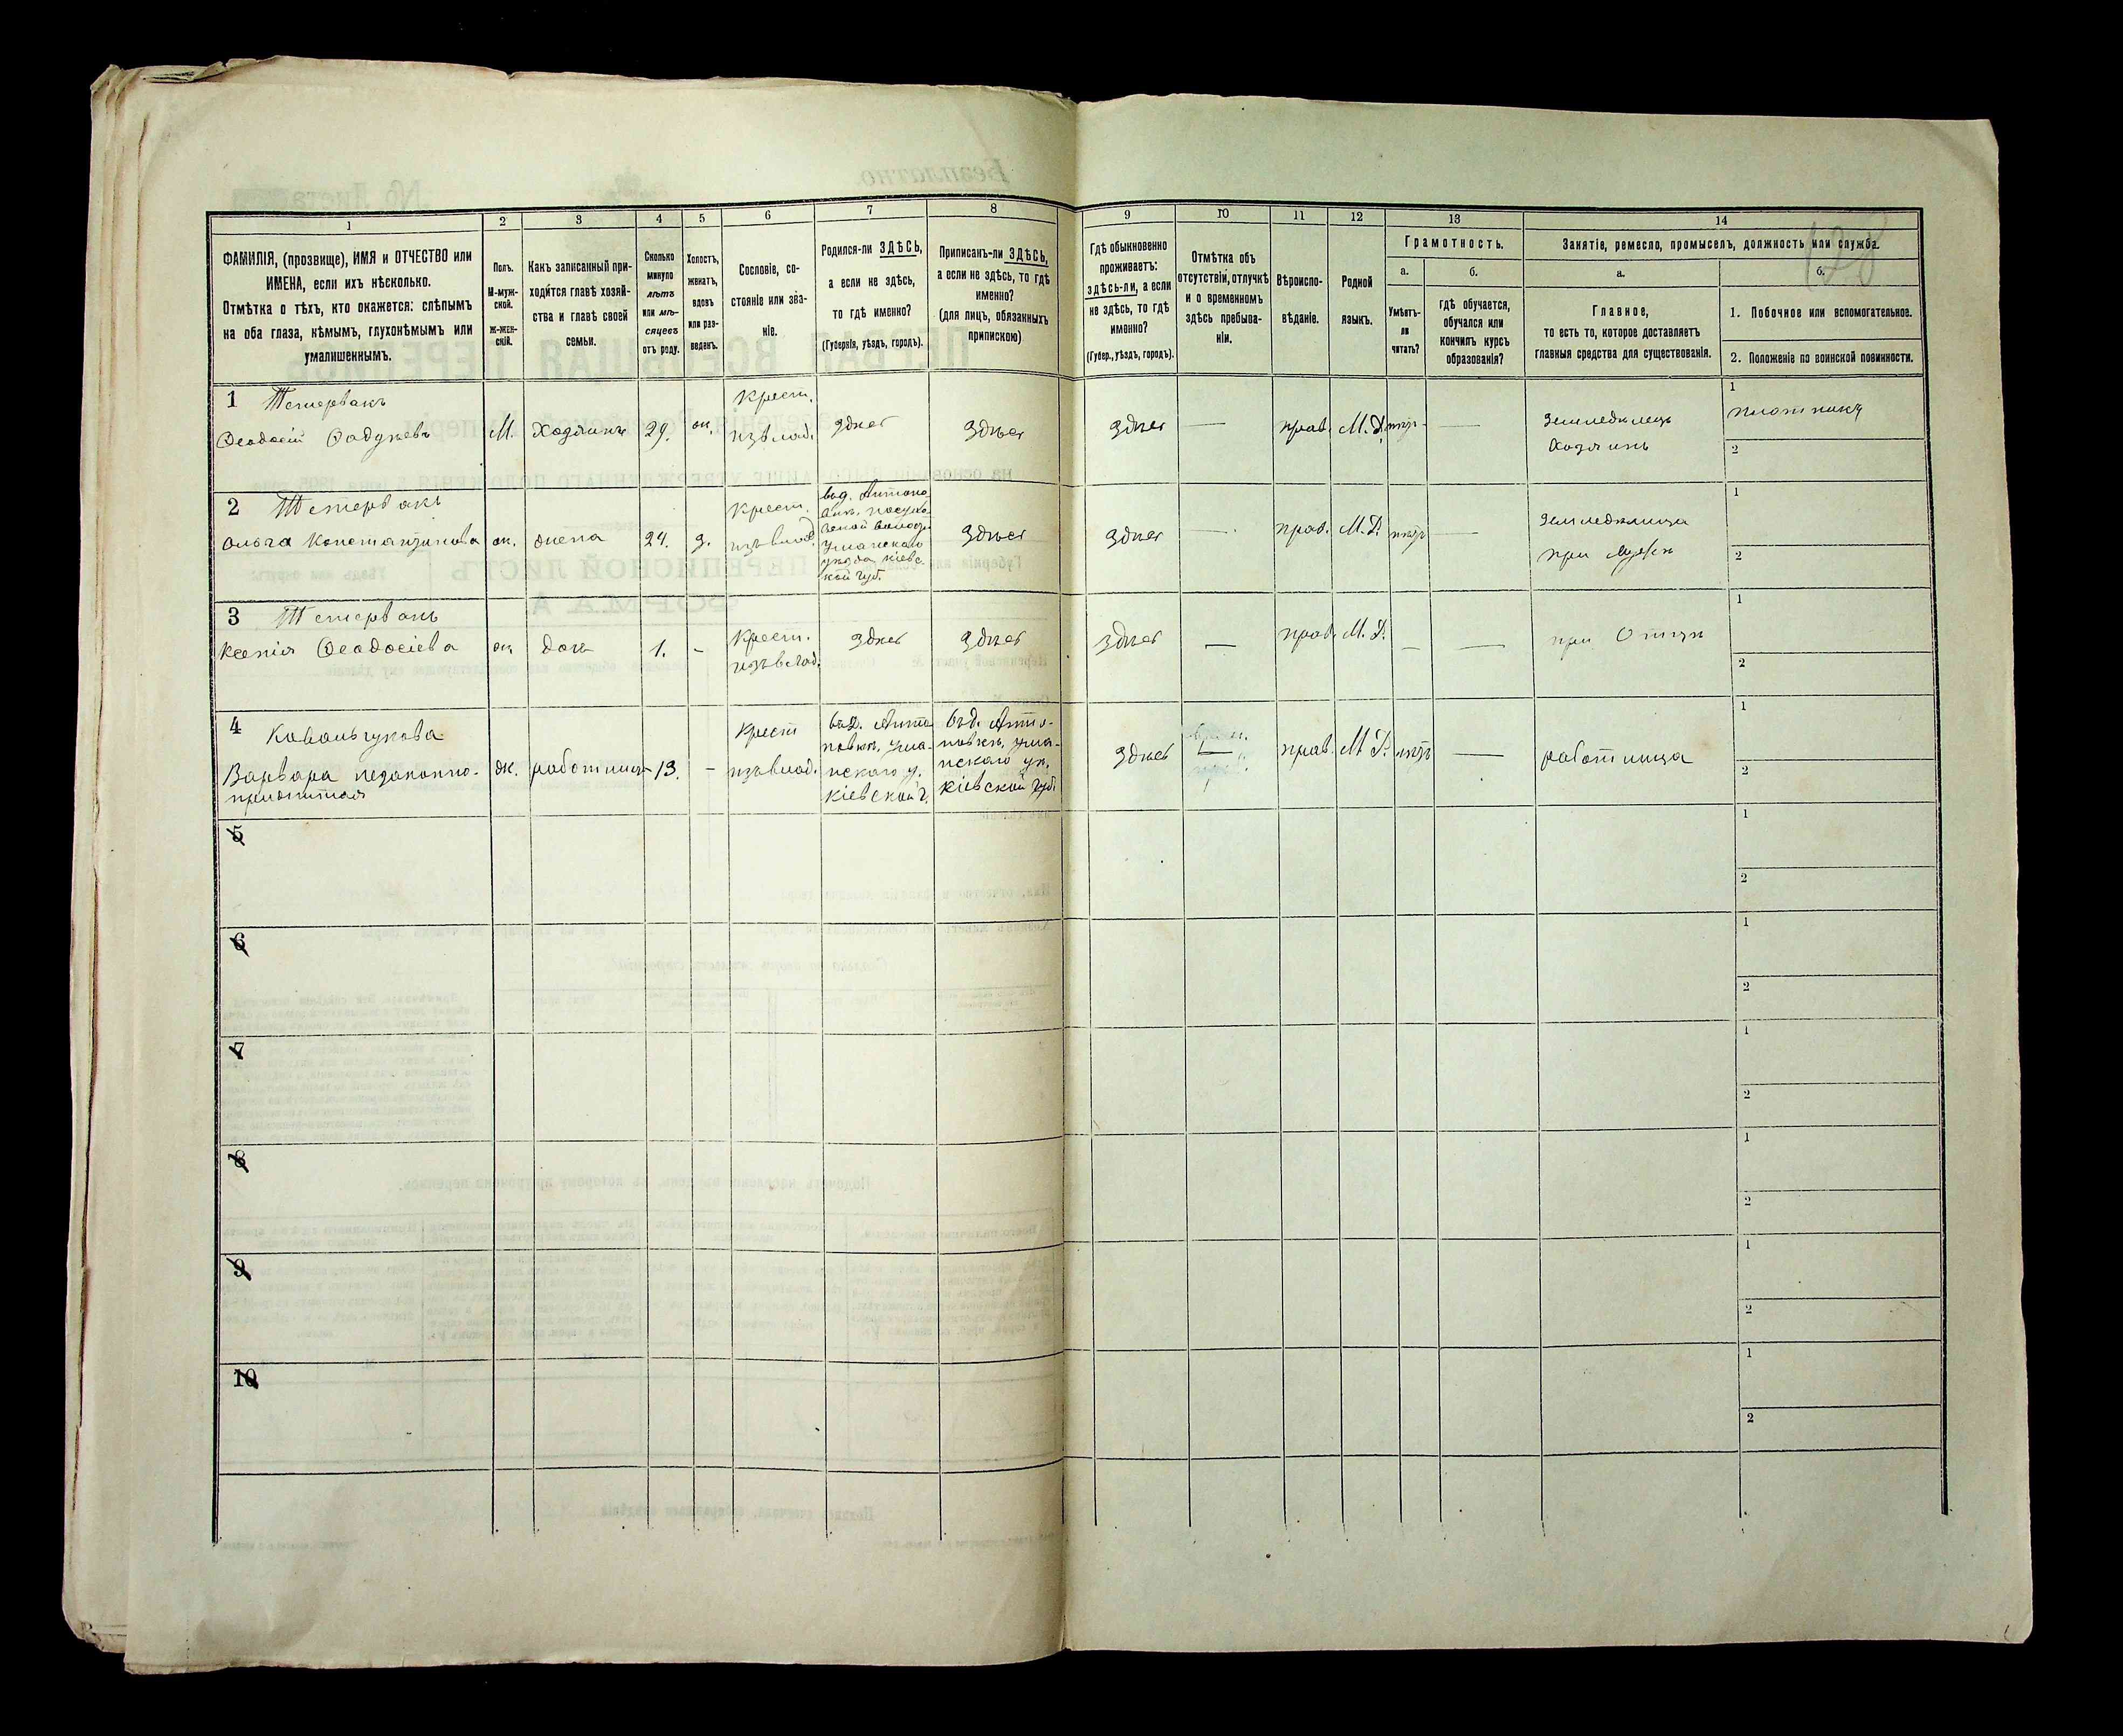 1
2
3
4
5
6
7
8
9
10
11
12
13
14
ФАМИЛІЯ, (прозвище), ИМЯ и ОТЧЕСТВО или
ИМЕНА, если ихъ нѣсколько.
Отмѣтка о тѣхъ, кто окажется: слѣпымъ
на оба глаза, нѣмымъ, глухонѣмымъ или
умалишеннымъ.
Полъ.
М-муж-
ской.
Ж-жен-
скій.
Какъ записанный при-
ходится главѣ хозяй-
ства и главѣ своей
семьи.
Сколько
минуло
лѣтъ
или мѣ-
сяцевъ
отъ роду.
Холостъ,
женатъ,
вдовъ
или раз-
веденъ.
Сословіе, со-
стояніе или зва-
ніе.
Родился-ли ЗДѢСЬ,
а если не здѣсь,
то гдѣ именно?
(Губернія, уѣздъ, городъ).
Приписанъ-ли ЗДѢСЬ,
а если не здѣсь, то гдѣ
именно?
(для лицъ, обязанныхъ
припискою)
Гдѣ обыкновенно
проживаетъ:
здѣсь-ли, а если
не здѣсь, то гдѣ
именно?
(Губер., уѣздъ, городъ).
Отмѣтка объ
отсутствіи, отлучкѣ
и о временномъ
здѣсь пребыва-
ніи.
Вѣроиспо-
вѣданіе.
Родной
языкъ.
Грамотность.
а.
б.
Умѣетъ-
ли
читать?
гдѣ обучается,
обучался или
кончилъ курсъ
образованія?
Занятіе, ремесло, промыселъ, должность или служба.
128
а.
б.
Главное,
то есть то, которое доставляетъ
главныя средства для существованія.
1. Побочное или вспомогательное.
2. Положеніе по воинской повинности.
1 Тетервакъ
Ѳеодосій М. Хозяинъ 29. ж. Крест. изъ влад. здѣсь здѣсь здѣсь — прав. М. Р. нѣтъ — Земледѣлецъ
Хозяинъ
1 плотникъ
2
2 Тетервакъ
Ольга Константинова ж. жена 24. з. Крест. изъ влад.
въ д. Антоно-
вкѣ,
Уманскаго
уѣзда Кіевс-
кой губ.
здѣсь здѣсь — прав. М. Р. нѣтъ — Земледѣлица
при мужѣ
1
2
3 Тетервакъ
Ксенія Ѳеодосіева ж. дочь 1. - Крест.
изъ влад. здѣсь здѣсь здѣсь — прав. М. Р. — — при Отцѣ
1
2
4 Ковальчукова
Варвара незаконно-
прижитая ж. работница 13. - Крест
изъ влад.
въ д. Анто-
новкѣ, Ума-
нскаго у.
Кіевской г.
въ д. Анто-
новкѣ, Ума-
нскаго уѣ.
Кіевской губ.
здѣсь — прав. М. Р. нѣтъ — работница
1
2
5
1
2
6
1
2
7
1
2
8
1
2
9
1
2
10
1
2